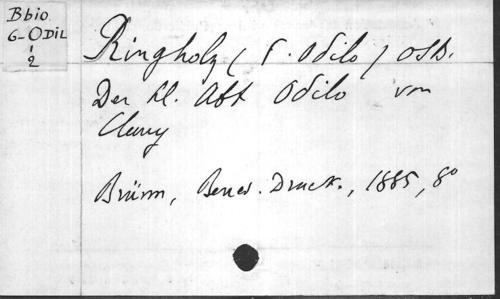 Bbio
G-ODIL
1
2
Ringholz (P. Odilo) OSB.
Der hl. Abt Odilo von
Cluny
Brünn, Bened. Druck., 1885, 8°